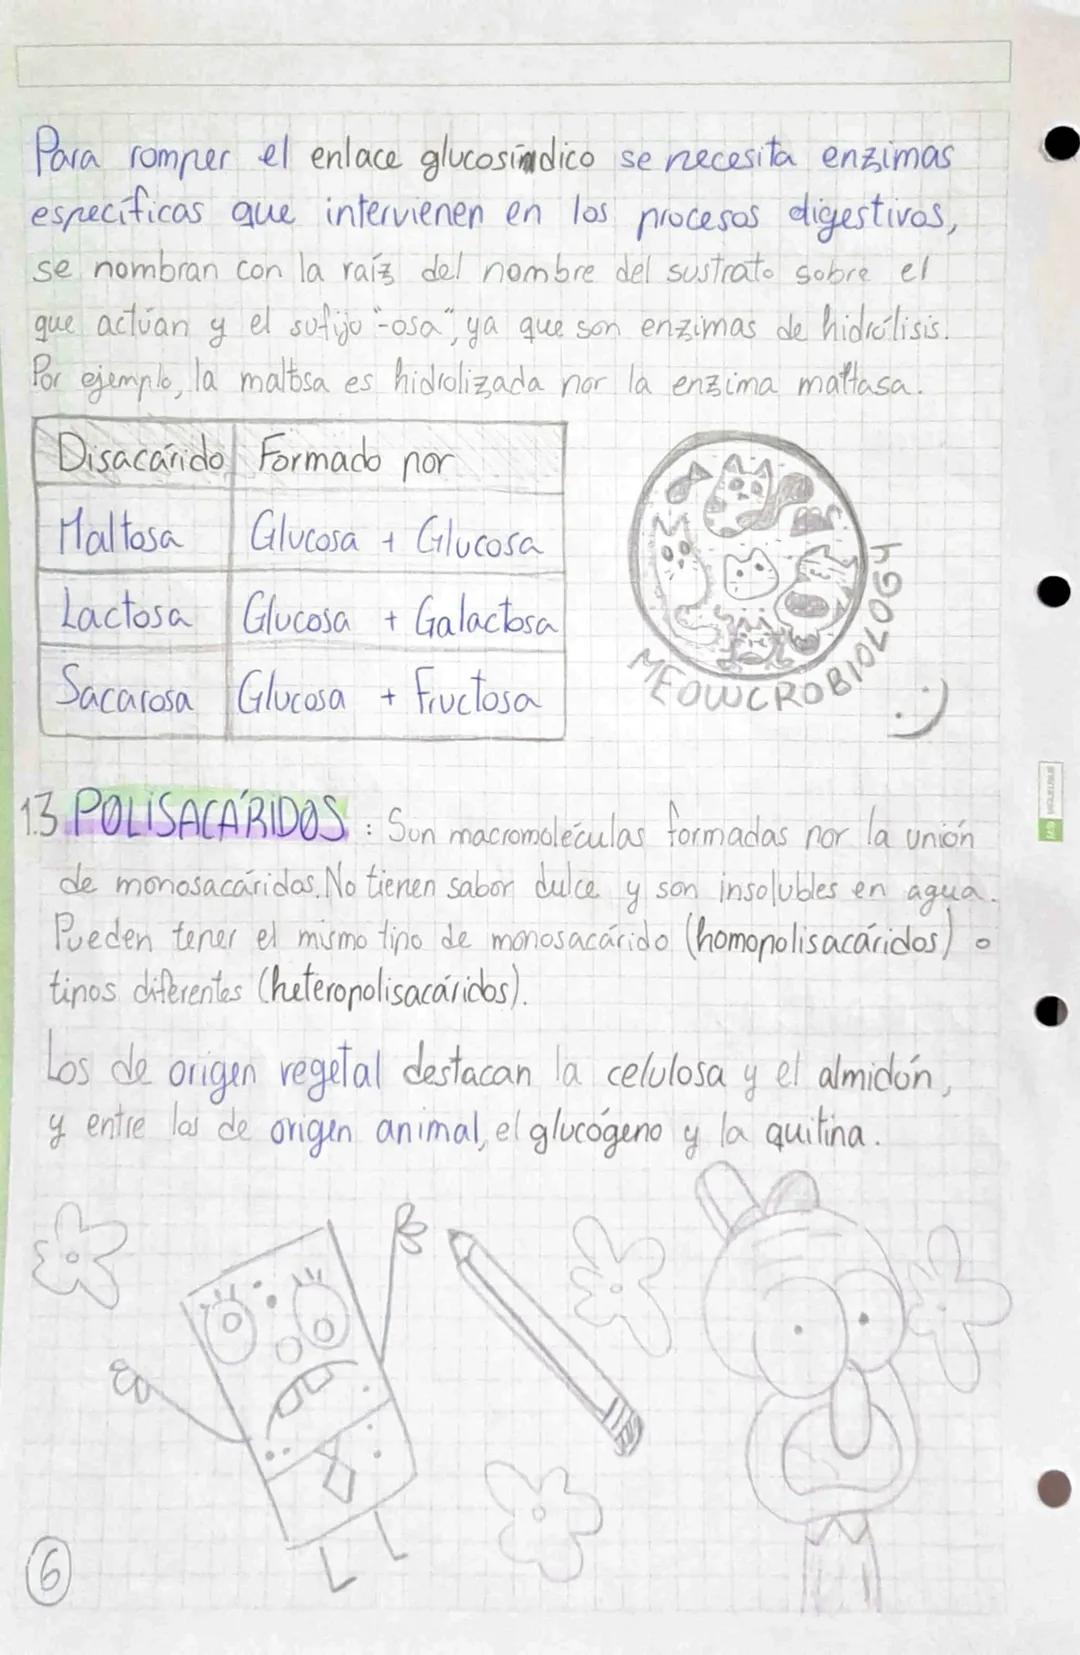 Para romper el enlace glucosíndico se necesita enzimas
específicas que intervienen en los procesos digestivos,
se nombran con la raíz del nombre del sustrato sobre el
que actúan y el sufijo "-osa", ya que son enzimas de hidrólisis.
Por ejemplo, la maltosa es hidrolizada por la enzima maltasa.
Disacárido Formado por
Maltosa Glucosa + Glucosa
Lactosa Glucosa + Galactosa
Sacarosa Glucosa + Fructosa
MEOWCROBIOLOGY
:)
1.3 POLISACÁRIDOS : Son macromoléculas formadas por la unión
de monosacáridos. No tienen sabor dulce y son insolubles en agua.
Pueden tener el mismo tipo de monosacárido (homopolisacáridos) o
tipos diferentes (heteropolisacáridos).
Los de origen vegetal destacan la celulosa y el almidón,
y entre los de origen animal, el glucógeno y la quitina.
6